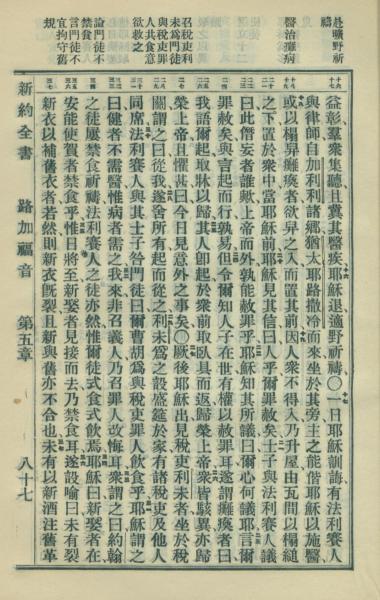 赴曠野祈
禱
醫治癱病
召稅吏利
未為門徒
與稅吏罪
人共食意
欲救之
論門徒不
禁食
言門徒不
宜拘守舊
規
益彰羣衆集聽且冀其醫疾耶穌退適野祈禱〇一日耶穌訓誨有法利賽人
與律師自加利利諸鄉猶太耶路撒冷而來坐於其旁主之能偕耶穌以施醫
或以榻舁癱瘓者欲舁之入而置其前因人衆不得入乃升屋由瓦間以榻縋
之下置於衆中當耶穌前耶穌見其信曰人乎爾罪赦矣士子與法利賽人議
曰此僭妄者誰歟上帝而外孰能赦罪乎耶穌知其所議曰爾心何議耶言爾
罪赦矣與言起而行孰易但令爾知人子在世有權以赦罪耳遂謂癱瘓者曰
我語爾起取牀以歸其人卽起於衆前取臥具而返歸榮上帝衆皆駭異亦歸
榮上帝且懼甚曰今日見意外之事矣〇厥後耶穌出見稅吏利未者坐於稅
關謂之曰從我遂舍所有起而從之利未為之設盛筵於家有諸稅吏及他人
同席法利賽人與其士子咎門徒曰爾曹胡為與稅吏罪人飲食乎耶穌謂之
曰健者不需醫惟病者需之我來非召義人乃召罪人改悔耳衆謂之曰約翰
之徒屢禁食祈禱法利賽人之徒亦然惟爾徒式食式飲焉耶穌曰新娶者在
安能使賀者禁食乎惟日將至新娶者見接而去乃禁食耳遂設喻曰未有裂
新衣以補舊衣者若然則新衣旣裂且新與舊亦不合也未有以新酒注舊革
新約全書 路加福音 第五章 八十七